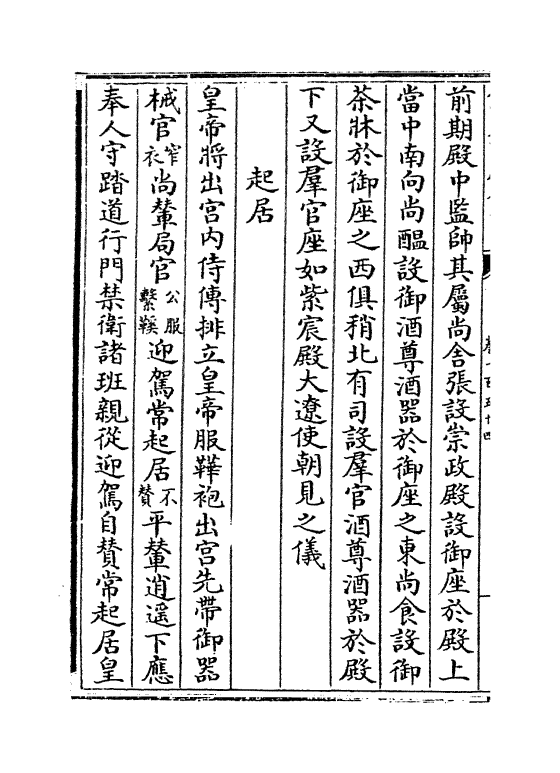 前期殿中監帥其屬尚舍張設崇政殿設御座於殿上
當中南向尚醖設御酒尊酒器於御座之東尚食設御
茶牀於御座之西俱稍北有司設羣官酒尊酒器於殿
下又設羣官座如紫宸殿大遼使朝見之儀
起居
皇帝將出宮内侍傳排立皇帝服鞾袍出宮先帶御器
械官窄衣尚輦局官公服繫鞵迎駕常起居不贊平輦逍遥下應
奉人守踏道行門禁衛諸班親從迎駕自贊常起居皇
卷一百五十四